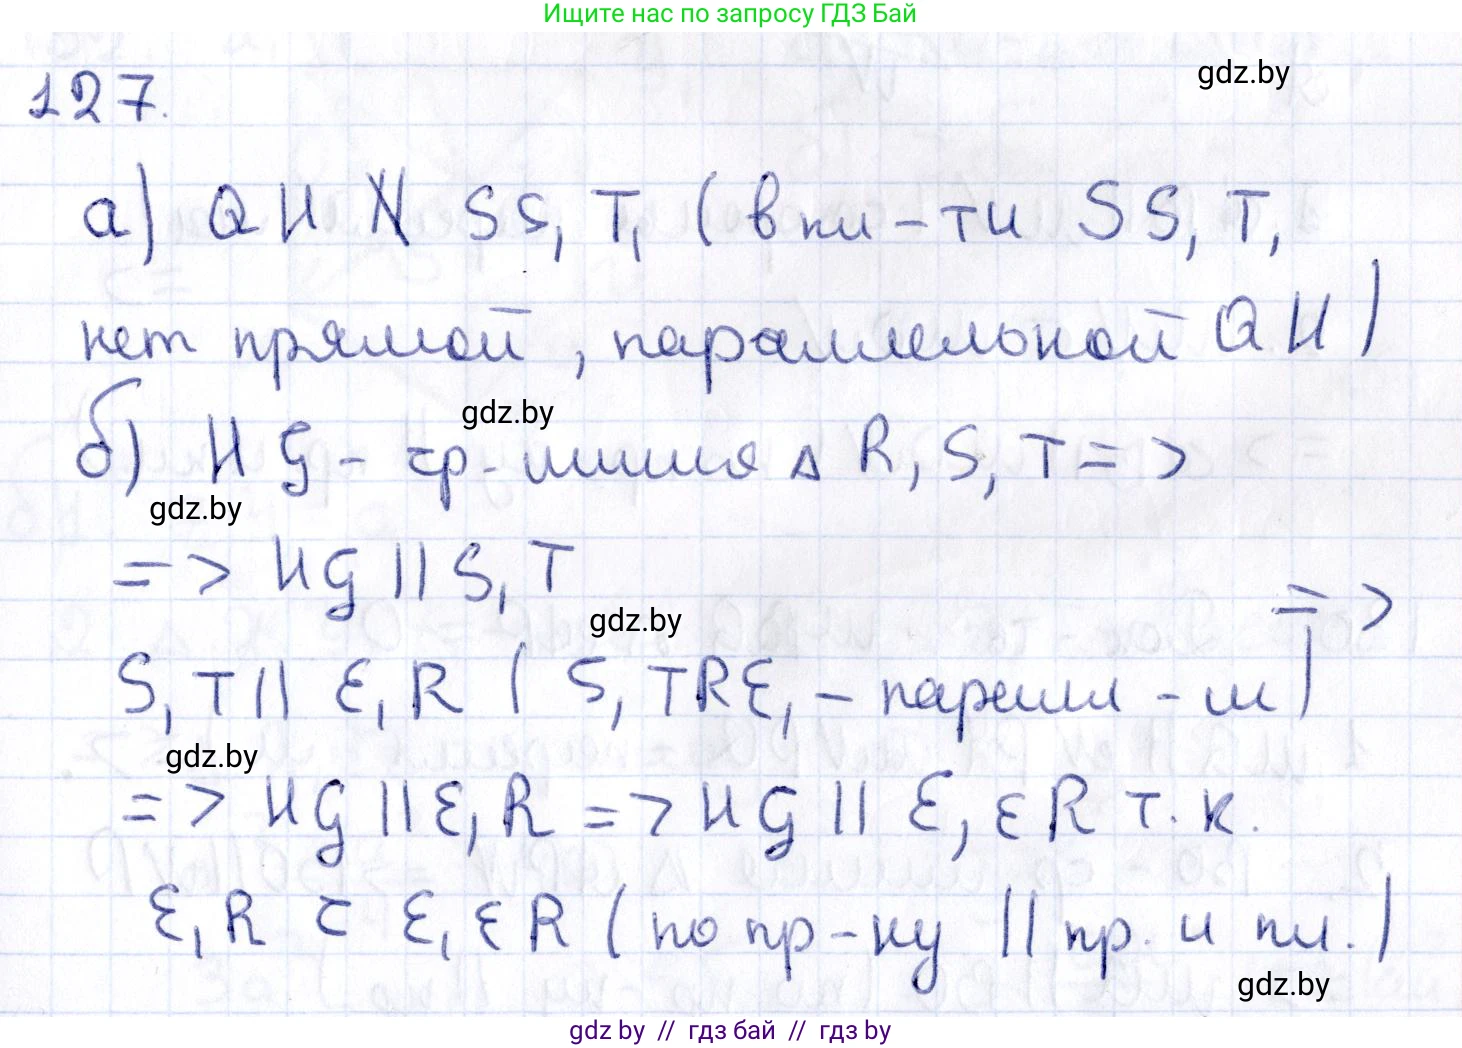 Ищите нас по запросу ГДЗ Бай
127.
gdz.by
а) QH ∦ SS₁T₁ (в пл-ти SS₁T₁
нет прямой, параллельной QH)
gdz.by
б) HG - ср-линия Δ R₁S₁T =>
gdz.by
=> HG || S₁T
gdz.by
=>
S₁T || E₁R ( S₁TRE₁ - паралл-м)
gdz.by
=> HG || E₁R => HG || E₁ER т.к.
E₁R ⊂ E₁ER (по пр-ку || пр. и пл.)
gdz.by
gdz.by // гдз бай // гдз by